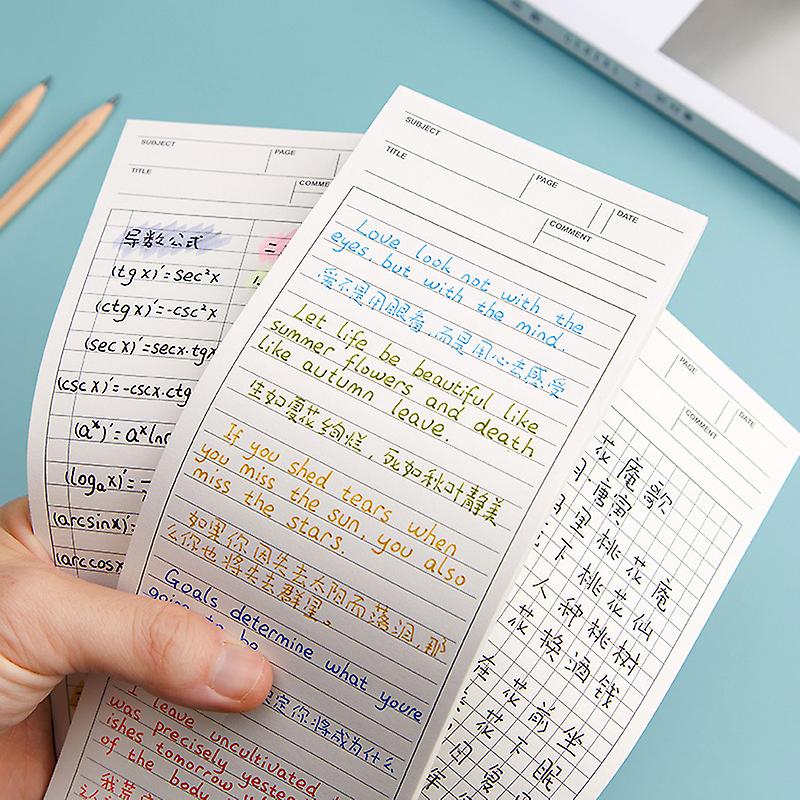 SUBJECT
PAGE
TITLE
导数公式
二
(tg x)'=sec²x
(ctg x)'=-csc²x
(sec x)'=secx·tgx
(csc x)'=-cscx·ctg
(aˣ)'=aˣln
(logₐx)'=
(arcsinx)'=
(arccosx
SUBJECT
PAGE
DATE
TITLE
COMMENT
Love look not with the
eyes, but with the mind.
爱不是用眼看,而是用心去感受
Let life be beautiful like
summer flowers and death
like autumn leave.
生如夏花绚烂,死如秋叶静美
If you shed tears when
you miss the sun, you also
miss the stars.
如果你因失去太阳而落泪,那
么你也将失去群星。
Goals determine what youre
going to be
定你将成为什么
I leave uncultivated
was precisely yester
ishes tomorrow
of the body
我荒
PAGE
DATE
COMMENT
花庵歌
唐寅
里桃花庵
下桃花仙
人种桃树
花换酒钱
在花前坐
花下眠
复
年